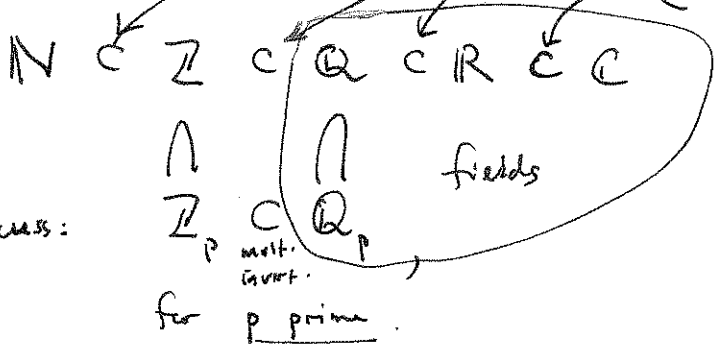 ℕ ⊂ ℤ ⊂ ℚ ⊂ ℝ ⊂ ℂ
∩ ∩ fields
ℤ_p ⊂ ℚ_p ,
mult.
invert.
for p prime.